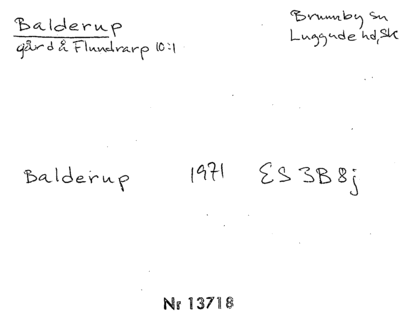 Balderup
gård å Flundrarp 10:1
Brunnby sn
Luggude hd, Sk
Balderup 1971 ES 3B 8j
Nr 13718